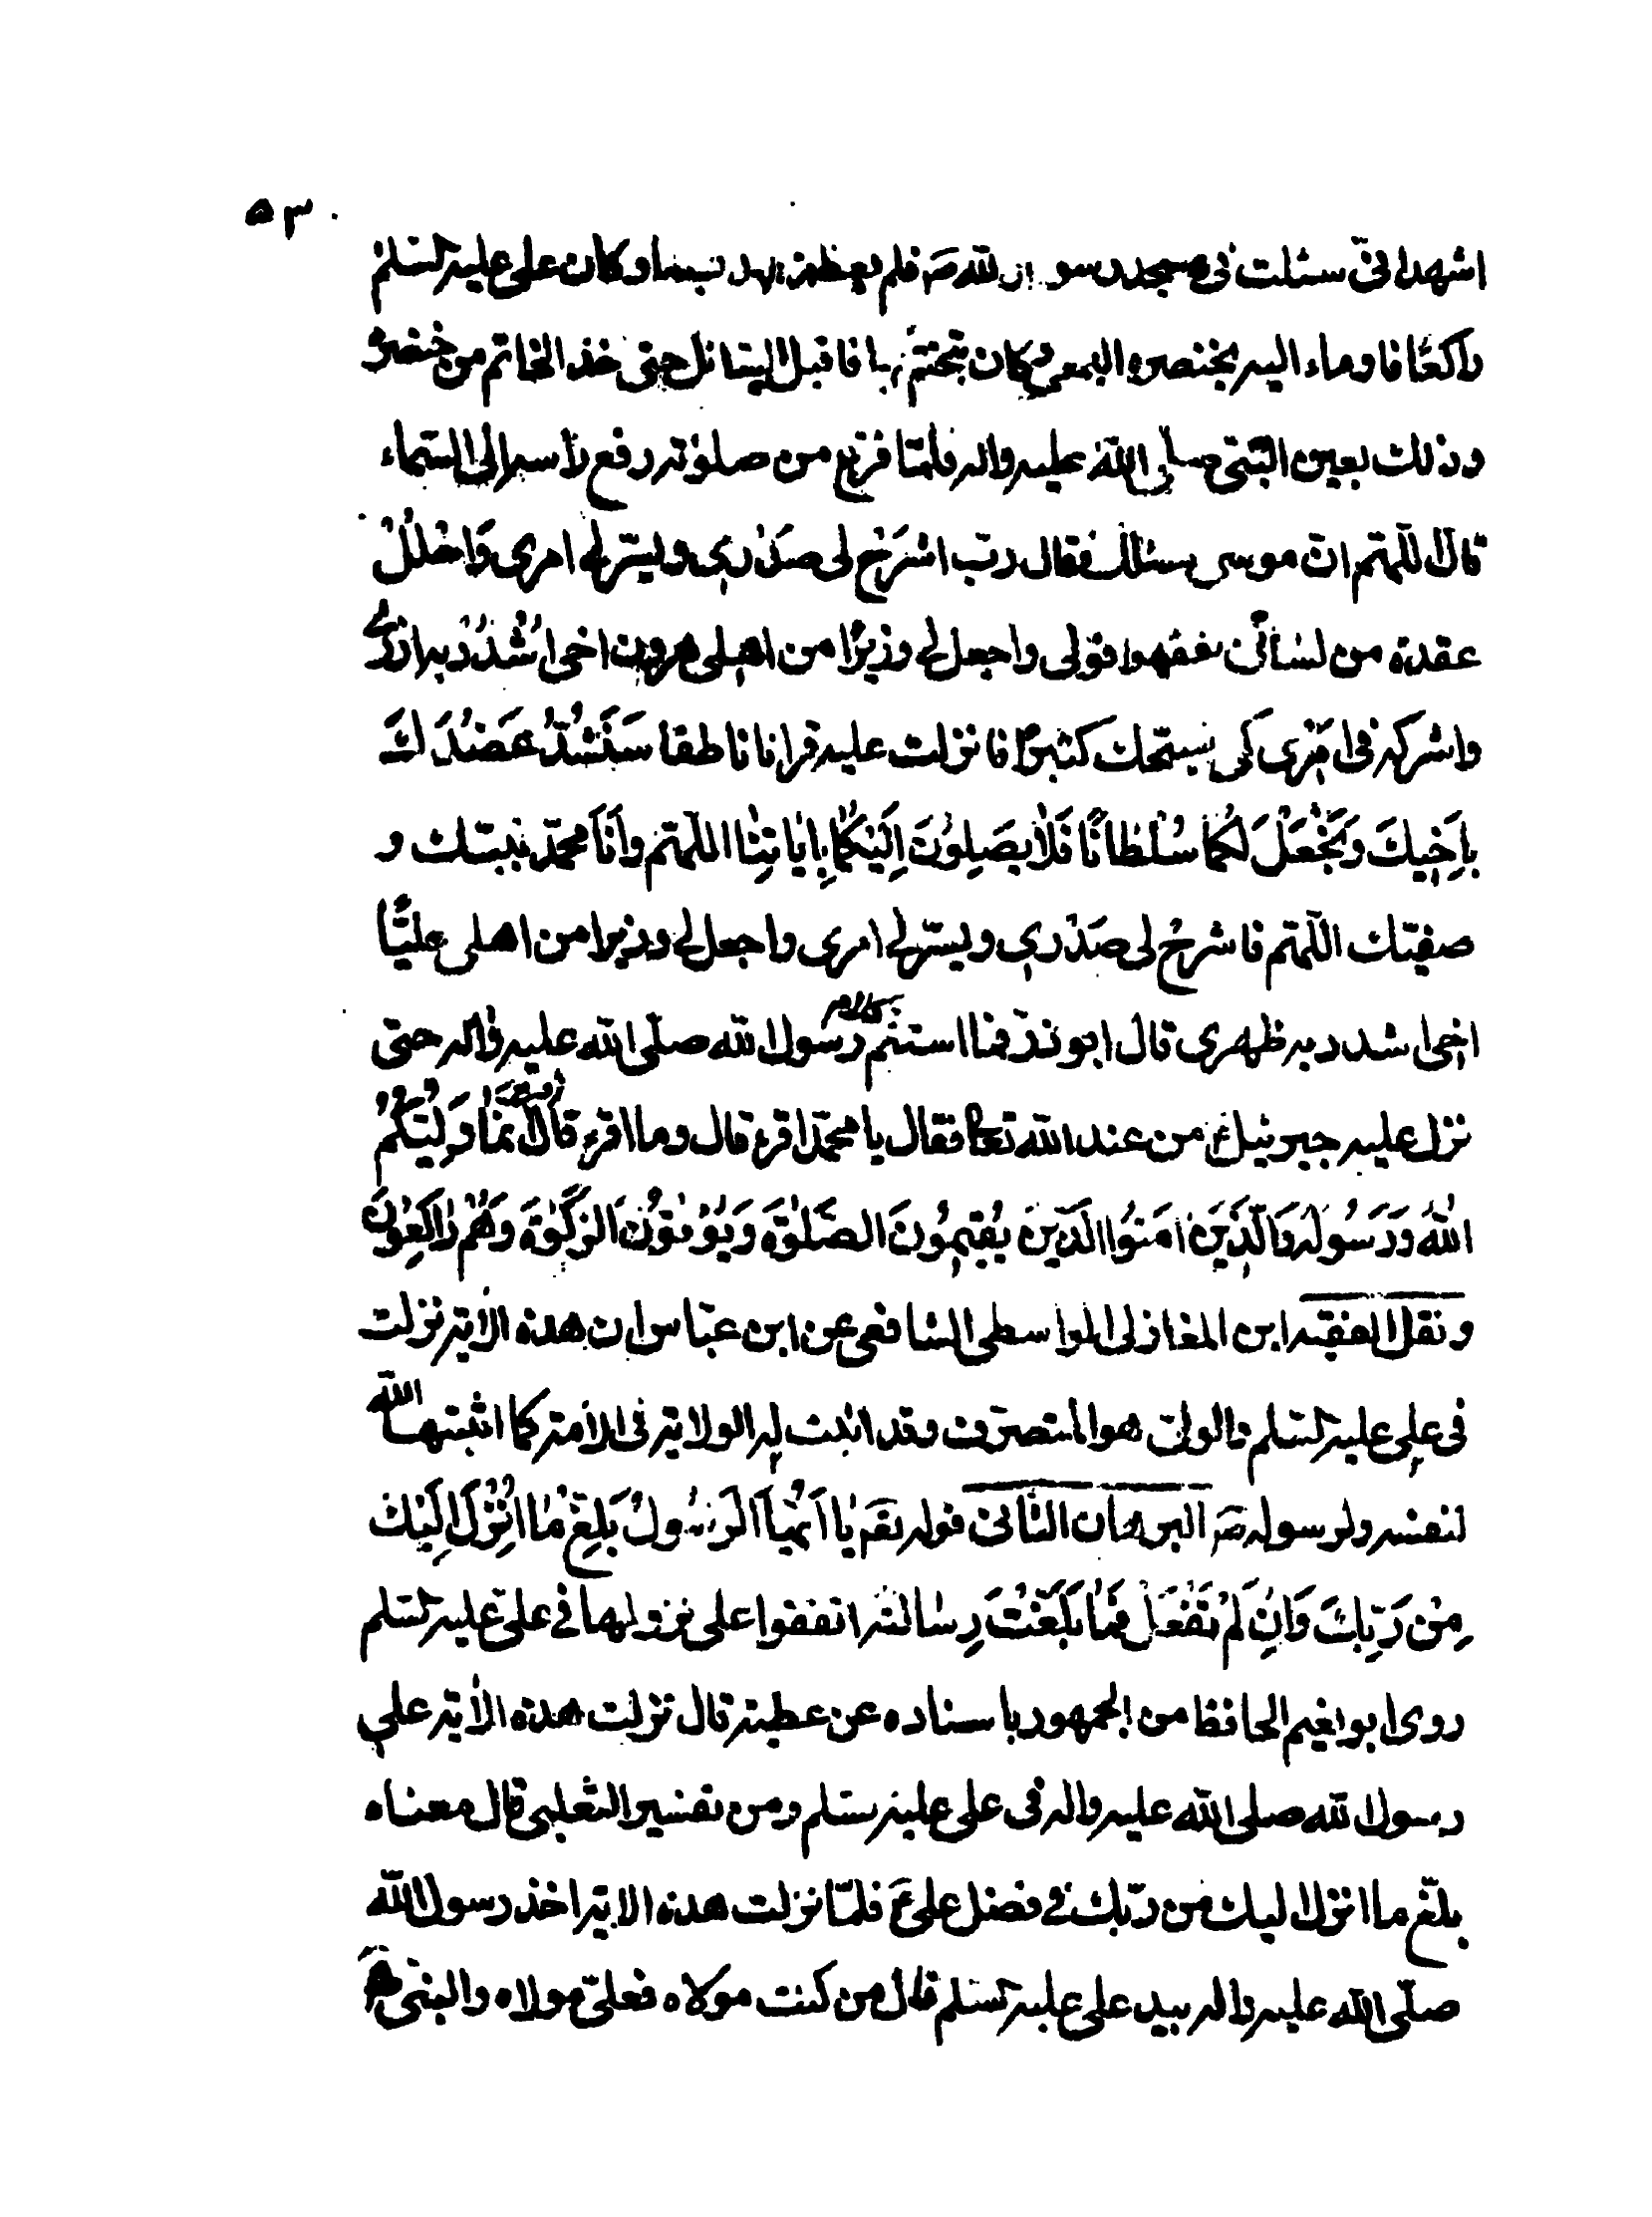 ٥٣
اشهد انی سئلت فی مسجد رسول الله صَ فلم یعطنی احد شیئا و کان علی علیه السّلم
راکعًا فاوماء الیه بخنصره الیمنی و کان یتختّم بها فاقبل السّائل حتی اخذ الخاتم من خنصره
و ذلک بعین النّبی صلی اللّه علیه واله فلمّا فرغ من صلوته رفع رأسه الی السّماء
قال اللّهم ان موسی سئلک فقال ربّ اشرَحْ لی صَدْری و یسّر لی امری وَاحْلُلْ
عقدة من لسانی یفقهوا قولی واجعل لی وزیرًا من اهلی هرون اخی اُشْدُدْ به ازری
واشرکه فی امری کَی نسبّحک کثیرًا فانزلت علیه قرانا ناطقا سَنَشُدُّ عَضُدَكَ
بِاَخِیكَ وَنَجْعَلُ لَكُما سُلْطانًا فَلا یَصِلُونَ اِلَیْكُما بِایاتِنا اللّهمّ وَاَنَا محمّد نبیّک و
صفیّک اللّهمّ فاشرحْ لی صَدْری و یسّر لی امری واجعل لی وزیرا من اهلی علیًّا
اخی اشدد به ظهری قال ابو ذرّ فما استتم کلام رسول الله صلّی الله علیه واله حتی
نزل علیه جبرئیل ع من عند الله تعالی فقال یا محمّد اقرء قال وما اقرء قال اقرء اِنَّما وَلِیُّکُمُ
اللهُ وَرَسُولُهُ وَالَّذینَ امَنُوا الَّذینَ یُقیمُونَ الصَّلوةَ وَیُؤْتُونَ الزَّکوةَ وَهُمْ راکِعُونَ
و نقل الفقیه ابن المغازلی الواسطی الشافعی عن ابن عبّاس ان هذه الایة نزلت
فی علی علیه السّلم والولی هو المتصرّف و قد اثبت له الولایة فی الامّة کما اثبتها الله
لنفسه ولرسوله صَ البرهان الثانی قوله تعَ یا اَیُّهَا الرَّسُولُ بَلِّغْ ما اُنْزِلَ اِلَیْكَ
مِنْ رَبِّكَ وَاِنْ لَمْ تَفْعَلْ فَما بَلَّغْتَ رِسالَتَهُ اتفقوا علی نزولها فی علیّ علیه السّلم
روی ابو نعیم الحافظ من الجمهور باسناده عن عطیة قال نزلت هذه الایة علی
رسول الله صلی الله علیه واله فی علی علیه السّلم ومن تفسیر الثعلبی قال معناه
بلّغ ما انزل الیك من ربّك فی فضل علی عَ فلمّا نزلت هذه الایة اخذ رسول الله
صلّی الله علیه واله بید علی علیه السّلم قال من کنت مولاه فعلیّ مولاه والنبی صَ